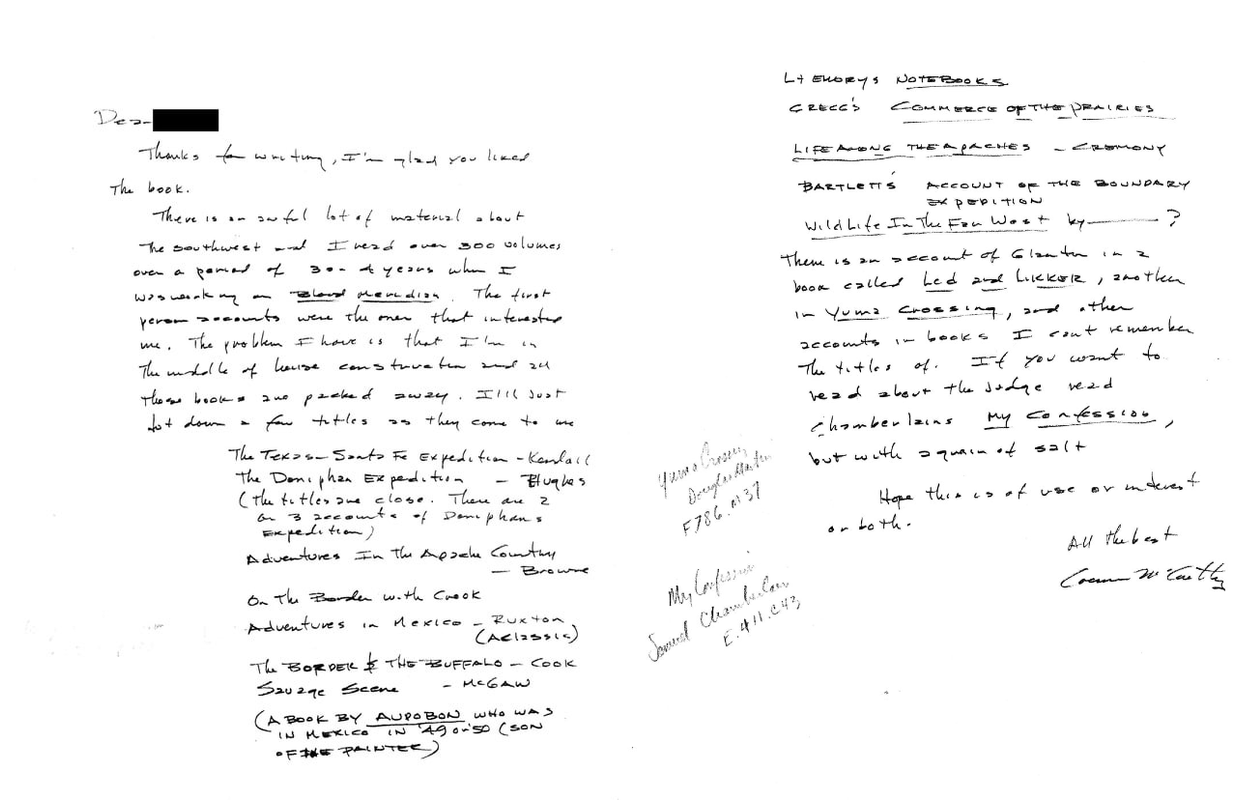 Dear
Thanks for writing, I'm glad you liked
The book.
There is an awful lot of material about
The southwest and I read over 300 volumes
over a period of 3 or 4 years when I
was working on Blood Meridian. The first
person accounts were the ones that interested
me. The problem I have is that I'm in
The middle of house construction and all
those books are packed away. I'll just
jot down a few titles as they come to me
The Texas-Santa Fe Expedition - Kendall
The Doniphan Expedition - Hughes
(The titles are close. There are 2
or 3 accounts of Doniphans
Expedition)
Adventures In The Apache Country
- Browne
On The Border with Crook
Adventures in Mexico - Ruxton
(A classic)
The BORDER & THE BUFFALO - COOK
Savage Scene - McGAW
(A BOOK BY AUDOBON WHO WAS
IN MEXICO IN '49 or '50 (SON
OF THE PAINTER)
Lt EMORYS NOTEBOOKS
GREGG'S COMMERCE OF THE PRAIRIES
LIFE AMONG THE APACHES - CREMONY
BARTLETT'S ACCOUNT OF THE BOUNDARY
EXPEDITION
Wild Life In The Far West by ——— ?
There is an account of Glanton in a
book called Led and LIKKER, another
in Yuma Crossing, and other
accounts in books I cant remember
The titles of. If you want to
read about the Judge read
Chamberlains My Confession,
but with a grain of salt
Hope this is of use or interest
or both.
All the best
Cormac McCarthy
Yuma Crossing
Douglas Martin
F786.M37
My Confession
Samuel Chamberlain
E.411.C43